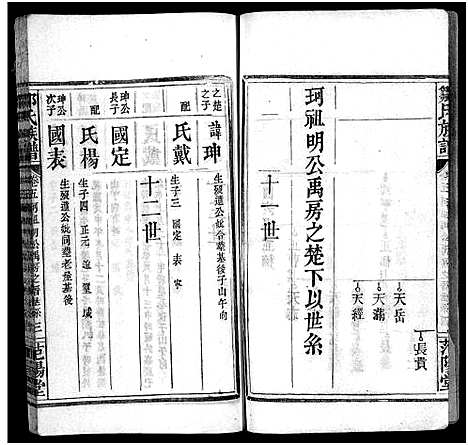 鄒氏族譜
范陽堂
天岳
天蒲
天經
長貴
珂祖明公禹房之楚下以世系
十一世
之楚之子
諱珅
生歿遺公妣合塟基後子山午向
配
戴氏
生子三 國定 表 寧
十二世
珅公長子
國定
配
楊氏
生子四 正元 道 聖 城
珅公次子
國表
生歿遺公妣同塟老塟基後
鄒氏族譜
卷五
范陽堂